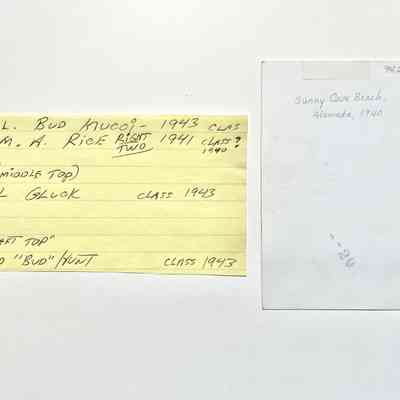 L. BUD 1943 CLAS
M. A. RICE RIGHT TWO 1941 CLASS?
1940?
(MIDDLE TOP)
L GLUCK CLASS 1943
TOP"
"BUD" CLASS 1943
Sunny Cove Beach,
Alameda, 1940